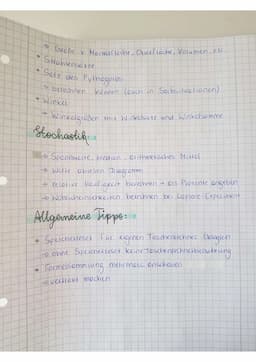 → Fläche, Mantelfläche, Oberfläche, Volumen, etc.
• Strahlensätze
• Satz des Pythagoras
→ berechnen können (auch in Sachsituationen)
• Winkel
→ Winkelgrößen mit Winkelsätze und Winkelsumme
Stochastik:
→ Spannweite, Median, arithmetisches Mittel
→ Werte ablesen Diagramm
→ relative Häufigkeit berechnen → als Prozente angeben
→ Wahrscheinlichkeiten berechnen bei Laplace-Experiment
Allgemeine Tipps:
• Spickzettel für eigenen Taschenrechner
→ ohne Spickzettel keine Taschenrechnerbenutzung
• Formelsammlung mehrmals anschauen
→ vertraut machen